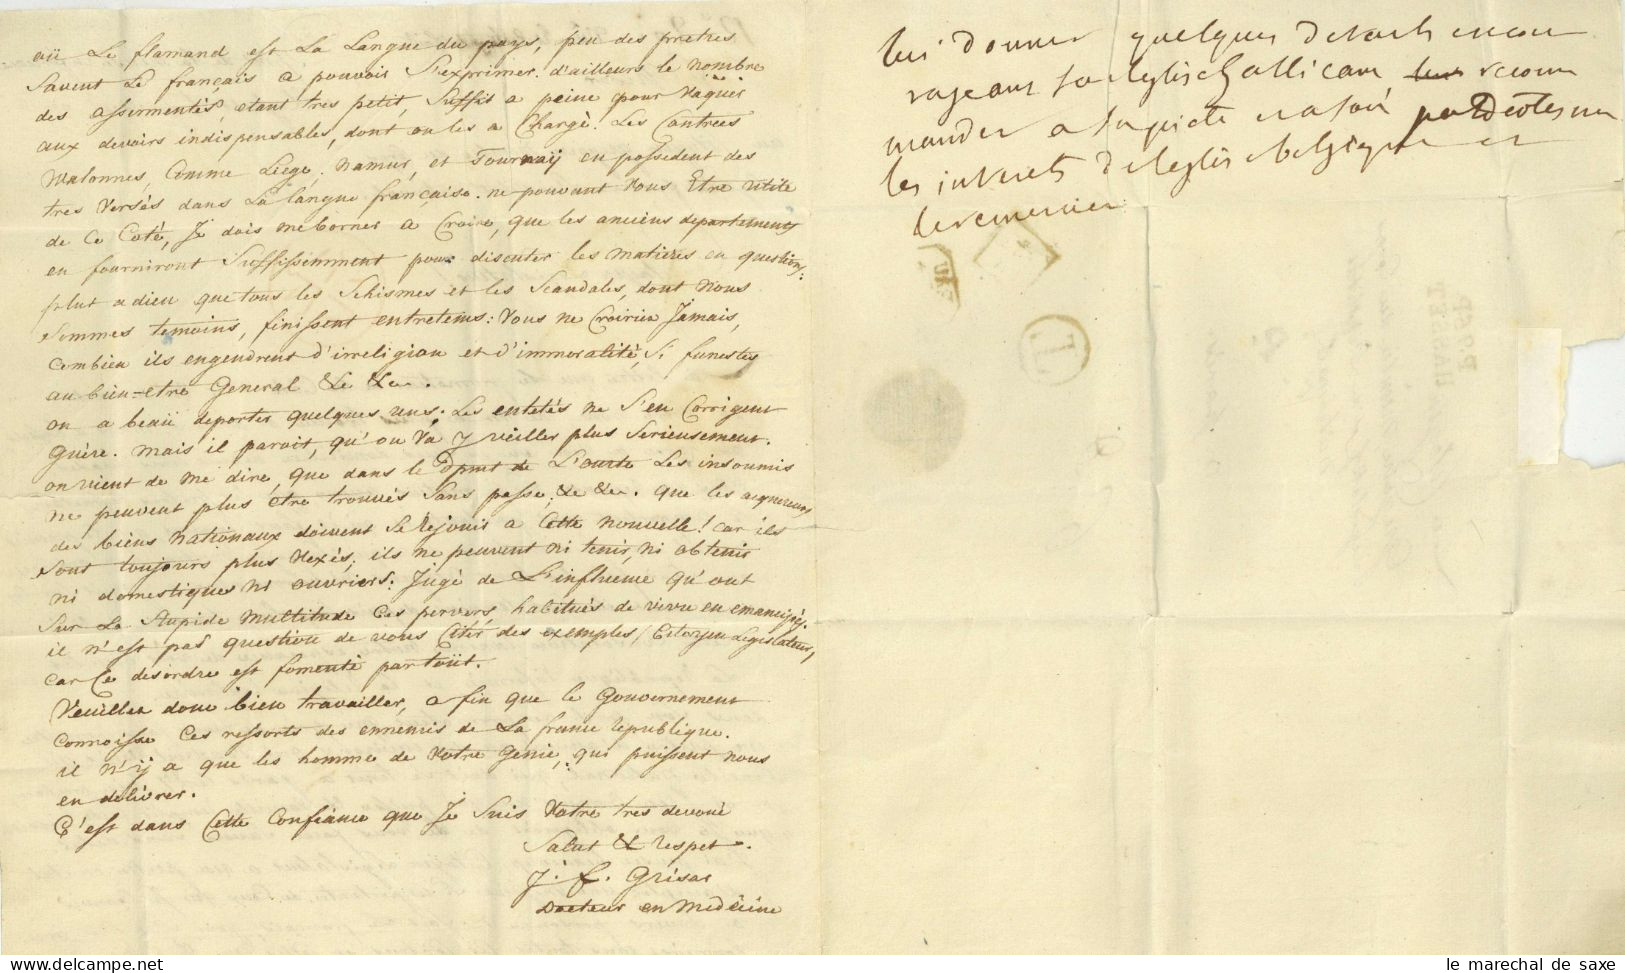 où Le flamand est La Langue du pays, peu des pretres
Savent Le français a pouvoir S'exprimer. d'ailleurs le nombre
des assermentés, etant tres petit, Suffit a peine pour Vaquer
aux devoirs indispensables, dont on les a Chargè. Les Contrées
Walonnes, Comme Liege, Namur, et Tournaÿ en possedent des
tres Versés dans La langue française. ne pouvant Vous Etre utile
de Ce Coté, Je dois me borner a Croire, que les anciens departements
en fourniront Suffissemment pour discuter les matieres en questions:
plut a dieu que tous les Schismes et les Scandales, dont Nous
Sommes temoins, finissent entretems: Vous ne Croiriez Jamais,
Combien ils engendrent d'irreligion et d'immoralité, Si funestes
au bien-etre General &c &c.
on a beaü deporter quelques uns: Les entetés ne S'en Corrigent
Guère. mais il paroit, qu'on Va y veiller plus Serieusement.
on vient de me dire, que dans le Dpmt de L'ourte Les insoumis
ne peuvent plus etre trouvés Sans passe, &c &c. que les acquereurs
des biens Nationaux doivent Se rejouir a Cette Nouvelle! Car ils
Sont toujours plus Vexés; ils ne peuvent ni tenir, ni obtenir
ni domestiques ni ouvriers. Jugé de L'influence qu'ont
Sur La Stupide Multitude Ces pervers, habitués de vivre en emancipés.
il n'est pas question de vous Citer des exemples, Citoyen Legislateur,
Car Ce desordre est fomenté partoüt.
Veuillez donc bien travailler, a fin que le Gouvernement
Connoisse Ces ressorts des ennemis de La france republique.
il n'ÿ a que les homme de Votre Genie, qui puissent nous
en delivrer.
C'est dans Cette Confiance que Je Suis Votre tres devoué
Salut & respet.
J. F. Grisar
Docteur en Medecine
lui donner quelques details encou
rageans sur leglise Gallicane recom
mander a sa piete
les interets de leglise belgique et
le remercier
L
le marechal de saxe